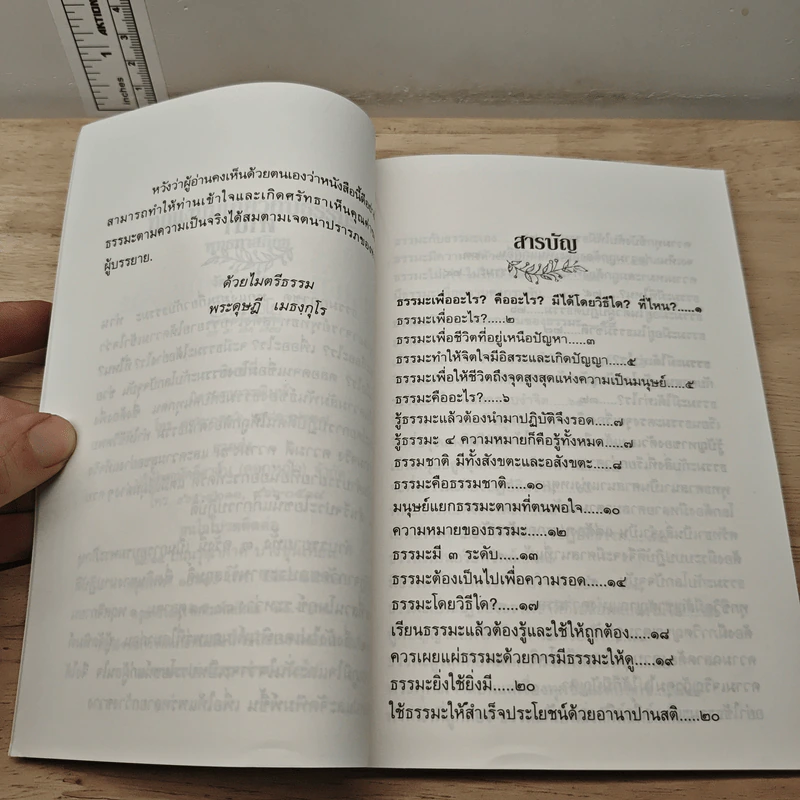 inches
1
ACTION
หวังว่าผู้อ่านคงเห็นด้วยตนเองว่าหนังสือนี้
สามารถทำให้ท่านเข้าใจและเกิดศรัทธาเห็นคุณค่า
ธรรมะตามความเป็นจริงได้สมตามเจตนาปรารภของ
ผู้บรรยาย.
ด้วยไมตรีธรรม
พระดุษฎี เมธงฺกุโร
สารบัญ
ธรรมะเพื่ออะไร? คืออะไร? มีได้โดยวิธีใด? ที่ไหน?....๑
ธรรมะเพื่ออะไร?.....๒
ธรรมะเพื่อชีวิตที่อยู่เหนือปัญหา.....๓
ธรรมะทำให้จิตใจมีอิสระและเกิดปัญญา.....๕
ธรรมะเพื่อให้ชีวิตถึงจุดสูงสุดแห่งความเป็นมนุษย์.....๕
ธรรมะคืออะไร?.....๖
รู้ธรรมะแล้วต้องนำมาปฏิบัติจึงรอด.....๗
รู้ธรรมะ ๔ ความหมายก็คือรู้ทั้งหมด.....๗
ธรรมชาติ มีทั้งสังขตะและอสังขตะ.....๘
ธรรมะคือธรรมชาติ.....๑๐
มนุษย์แยกธรรมะตามที่ตนพอใจ.....๑๐
ความหมายของธรรมะ.....๑๒
ธรรมะมี ๓ ระดับ.....๑๓
ธรรมะต้องเป็นไปเพื่อความรอด.....๑๔
ธรรมะโดยวิธีใด?.....๑๗
เรียนธรรมะแล้วต้องรู้และใช้ให้ถูกต้อง.....๑๘
ควรเผยแผ่ธรรมะด้วยการมีธรรมะให้ดู.....๑๙
ธรรมะยิ่งใช้ยิ่งมี.....๒๐
ใช้ธรรมะให้สำเร็จประโยชน์ด้วยอานาปานสติ.....๒๐